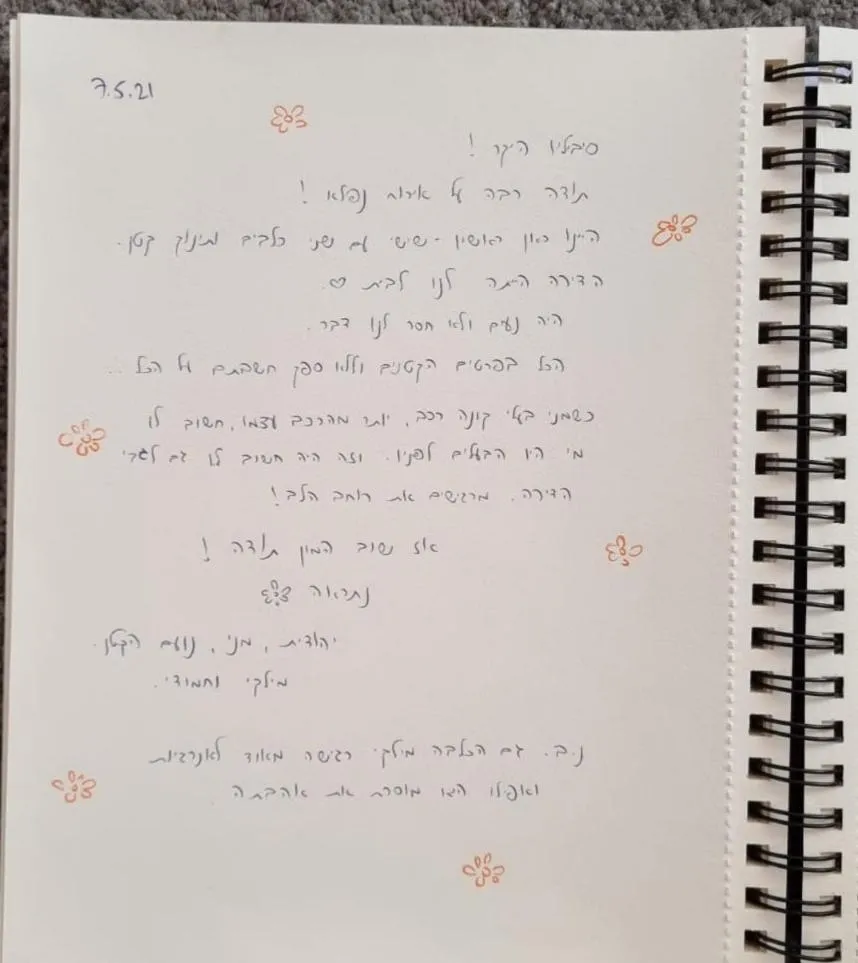 7.5.21
סיבליו היקר!
תודה רבה על אירוח נפלא!
היינו כאן ראשון-שישי עם שני כלבים ותינוק קטן.
הדירה הייתה לנו לבית ♡.
היה נעים ולא חסר לנו דבר.
הכל בפרטים הקטנים וללא ספק חשבתם על הכל..
כשמני בעלי קונה רכב, יותר מהרכב עצמו, חשוב לו
מי היו הבעלים לפניו. וזה היה חשוב לו גם לגבי
הדירה. מרגישים את רוחב הלב!
אז שוב המון תודה!
נתראה
יהודית, מני, נועם הקטן.
מילקי וחמודי.
נ.ב. גם הכלבה מילקי רגישה מאוד לאנרגיות
ואפילו היא מוסרת את אהבתה